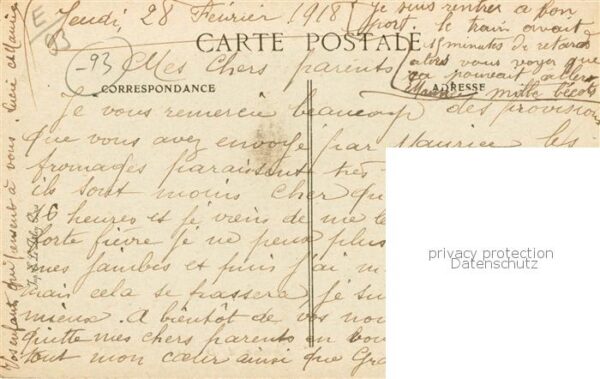 Jeudi, 28 Février 1918
Je suis rentré à bon
port. le train avait
15 minutes de retard
alors vous voyez que
ça pouvait aller
Maurice mille bécots
E
93
CARTE POSTALE
-93
Mes chers parents
CORRESPONDANCE
ADRESSE
Je vous remercie beaucoup des provisions
que vous avez envoyé par Maurice les
fromages paraissent très
ils sont moins cher qu
16 heures et je viens de me
forte fièvre je ne peux plus
mes jambes et puis j'ai m
mais cela se passera, je su
mieux. A bientôt de vos nou
quitte mes chers parents en vou
tout mon cœur ainsi que Gra
Vos enfants qui pensent à vous. Lucie et Maurice
privacy protection
Datenschutz